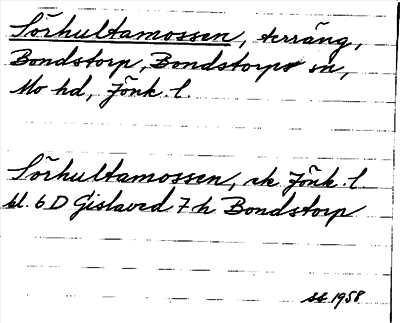 Sörhultamossen, terräng,
Bondstorp, Bondstorps sn,
Mo hd, Jönk. l.
Sörhultamossen, ek. Jönk. l.
bl. 6 D Gislaved 7 h Bondstorp
1958